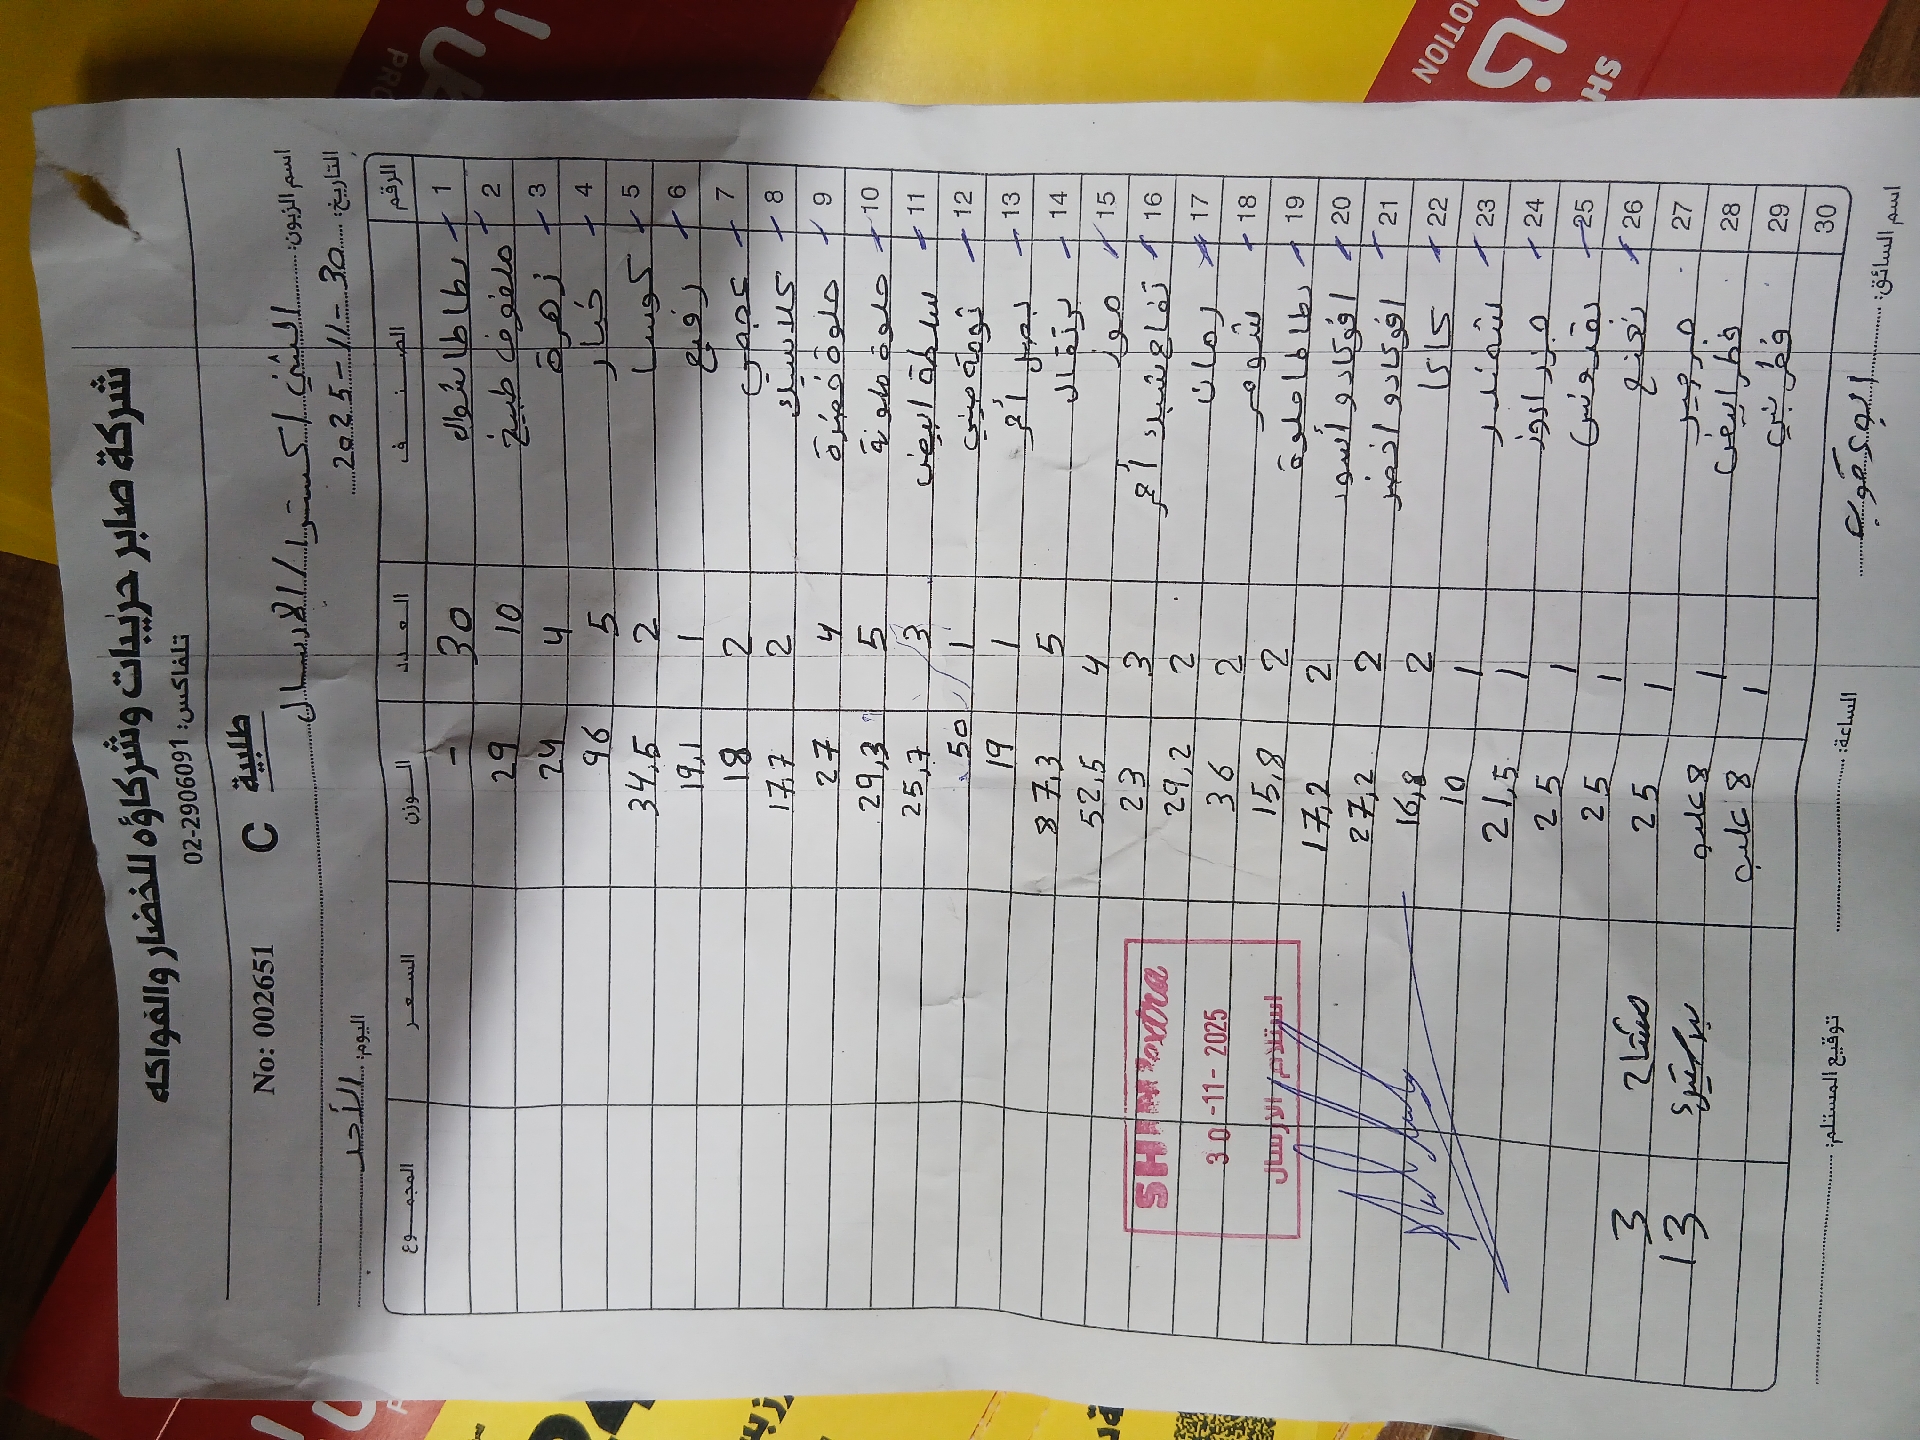 شركة صابر حريبات وشركاؤه للخضار والفواكه
تلفاكس: 02-2906091
طلبية C No: 002651
اسم الزبون: الشني اكسترا / الارسال
التاريخ: 30-11-2025 اليوم: الأحد
الرقم الصنف العدد الوزن السعر المجموع
1 بطاطا شوال 30 -
2 ملفوف طبيخ 10 29
3 زهرة 4 24
4 خيار 5 96
5 كوسا 2 34,5
6 رفيع 1 19,1
7 عجمي 2 18
8 كلاسيك 2 17,7
9 حلوة خضرة 4 27
10 حلوة ملونة 5 29,3
11 سلطة ابيض 3 25,7
12 ثومة صيني 1 50
13 بصل أحمر 1 19
14 برتقال 5 87,3
15 موز 4 52,5
16 تفاح شيد أحمر 3 23
17 رمان 2 29,2
18 شومر 2 36
19 بطاطا حلوة 2 15,8
20 افوكادو أسود 2 17,2
21 افوكادو اخضر 2 27,2
22 كاكا 2 16,8
23 شمندر 1 10
24 جزر اروز 1 21,5
25 بقدونس 1 25
26 نعنع 1 25
27 جرجير 1 25
28 فطر ابيض 1 8 علب
29 فطر بني 1 8 علب
30
SHINI extra
30-11-2025
استلام الارسال
مشتاح 3
13
اسم السائق: ابو يعقوب الساعة: توقيع المستلم:
PROMOTION